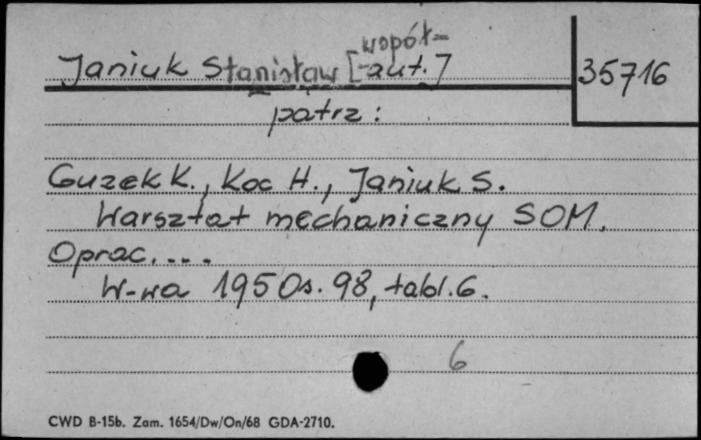 Janiuk Stanisław [współ=
-aut.]
35716
patrz:
Guzek K., Koc H., Janiuk S.
Warsztat mechaniczny SOM.
Oprac. ...
W-wa 1950 s. 98, tabl. 6.
6
CWD B-15b. Zam. 1654/Dw/On/68 GDA-2710.